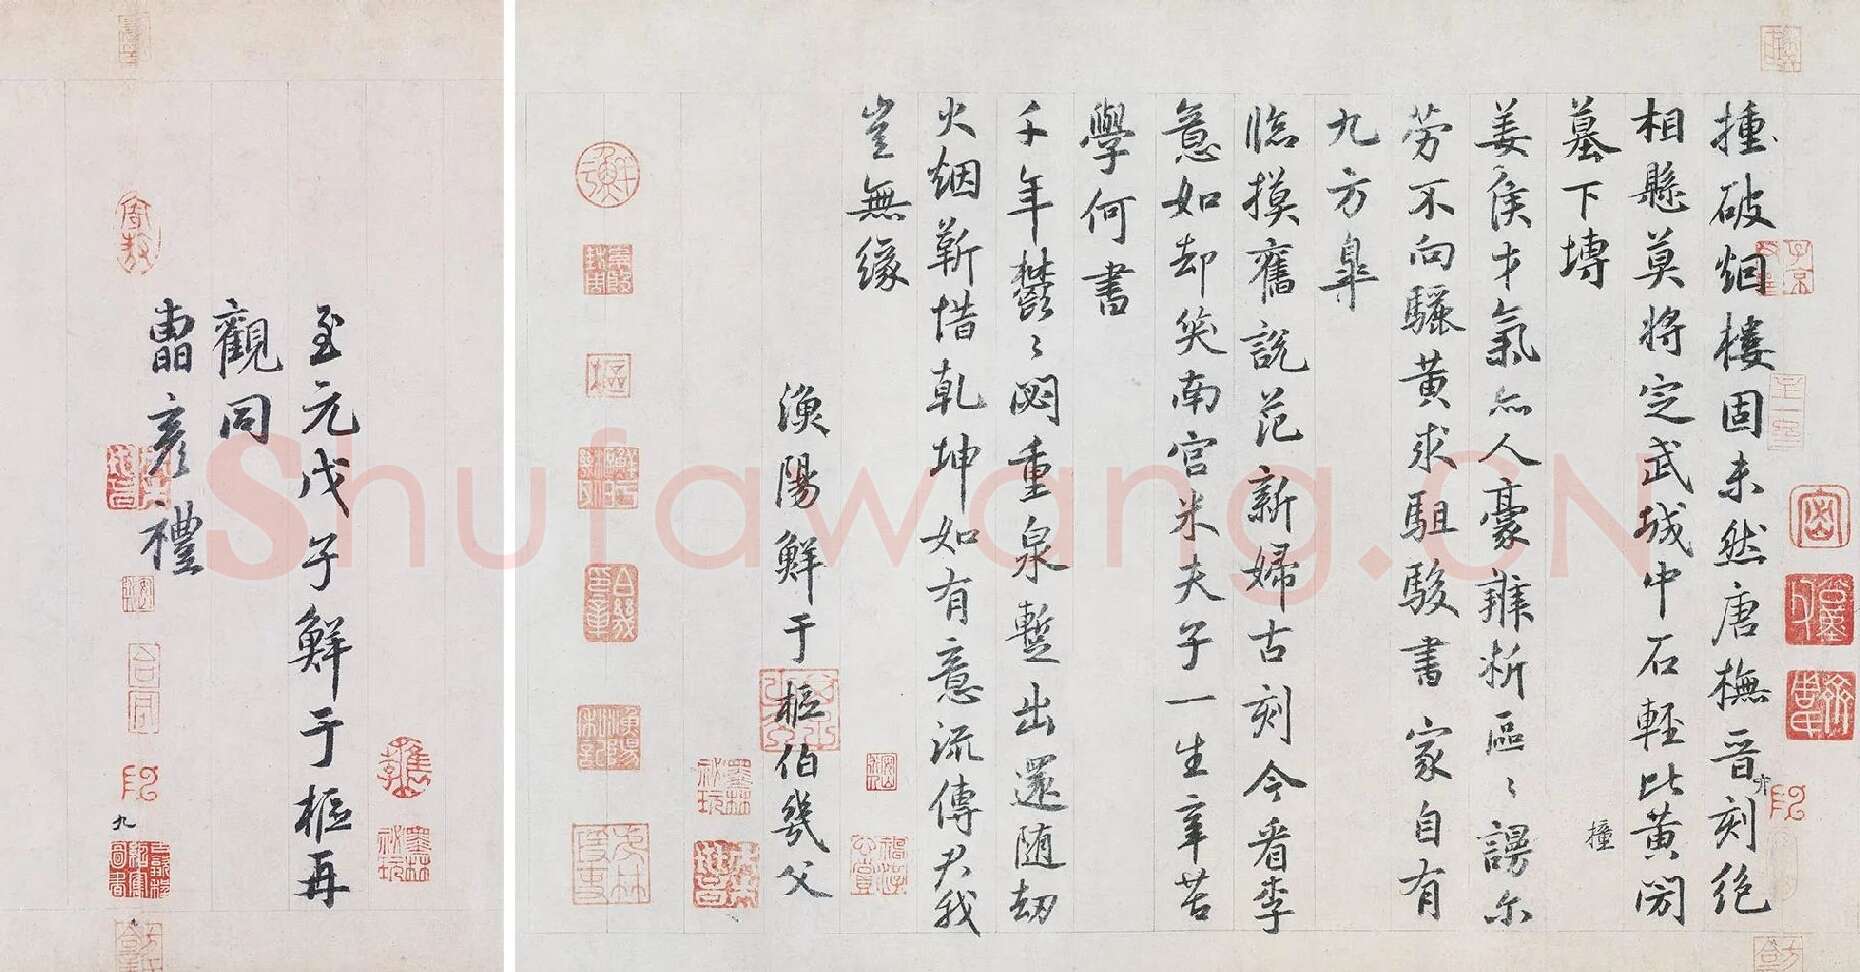 撞破烟樓固未然唐橅晋刻絶
相懸莫將定武城中石輕比黄閍
墓下塼
姜侯才氣亦人豪辨析區〻謾尔
勞不向驪黄求駔駿書家自有
九方臯
臨摸舊説范新婦古刻今看李
意如却笑南宫米夫子一生辛苦
學何書
千年欝〻閟重泉暫出還随劫
火烟靳惜乾坤如有意流傳尹我
豈無緣
漁陽鮮于樞伯幾父
至元戊子鮮于樞再
觀同
曹彦禮
撞
九
Shufawang.CN